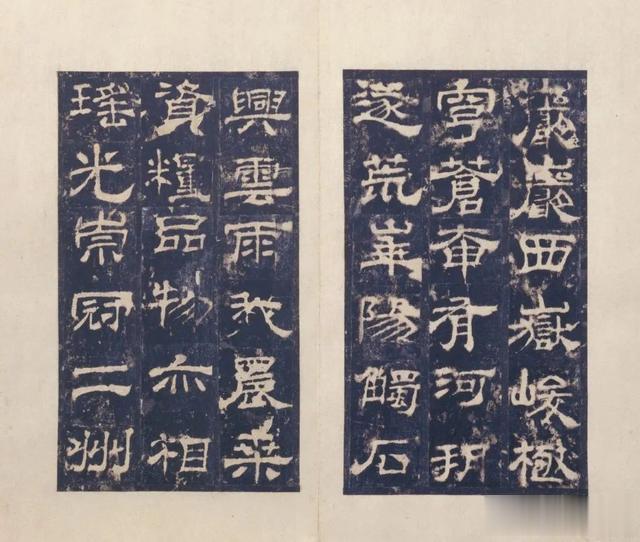 巖巖西嶽峻極
穹蒼奄有河朔
遂荒華陽觸石
興雲雨我農桒
資糧品物亦相
瑤光崇冠二州